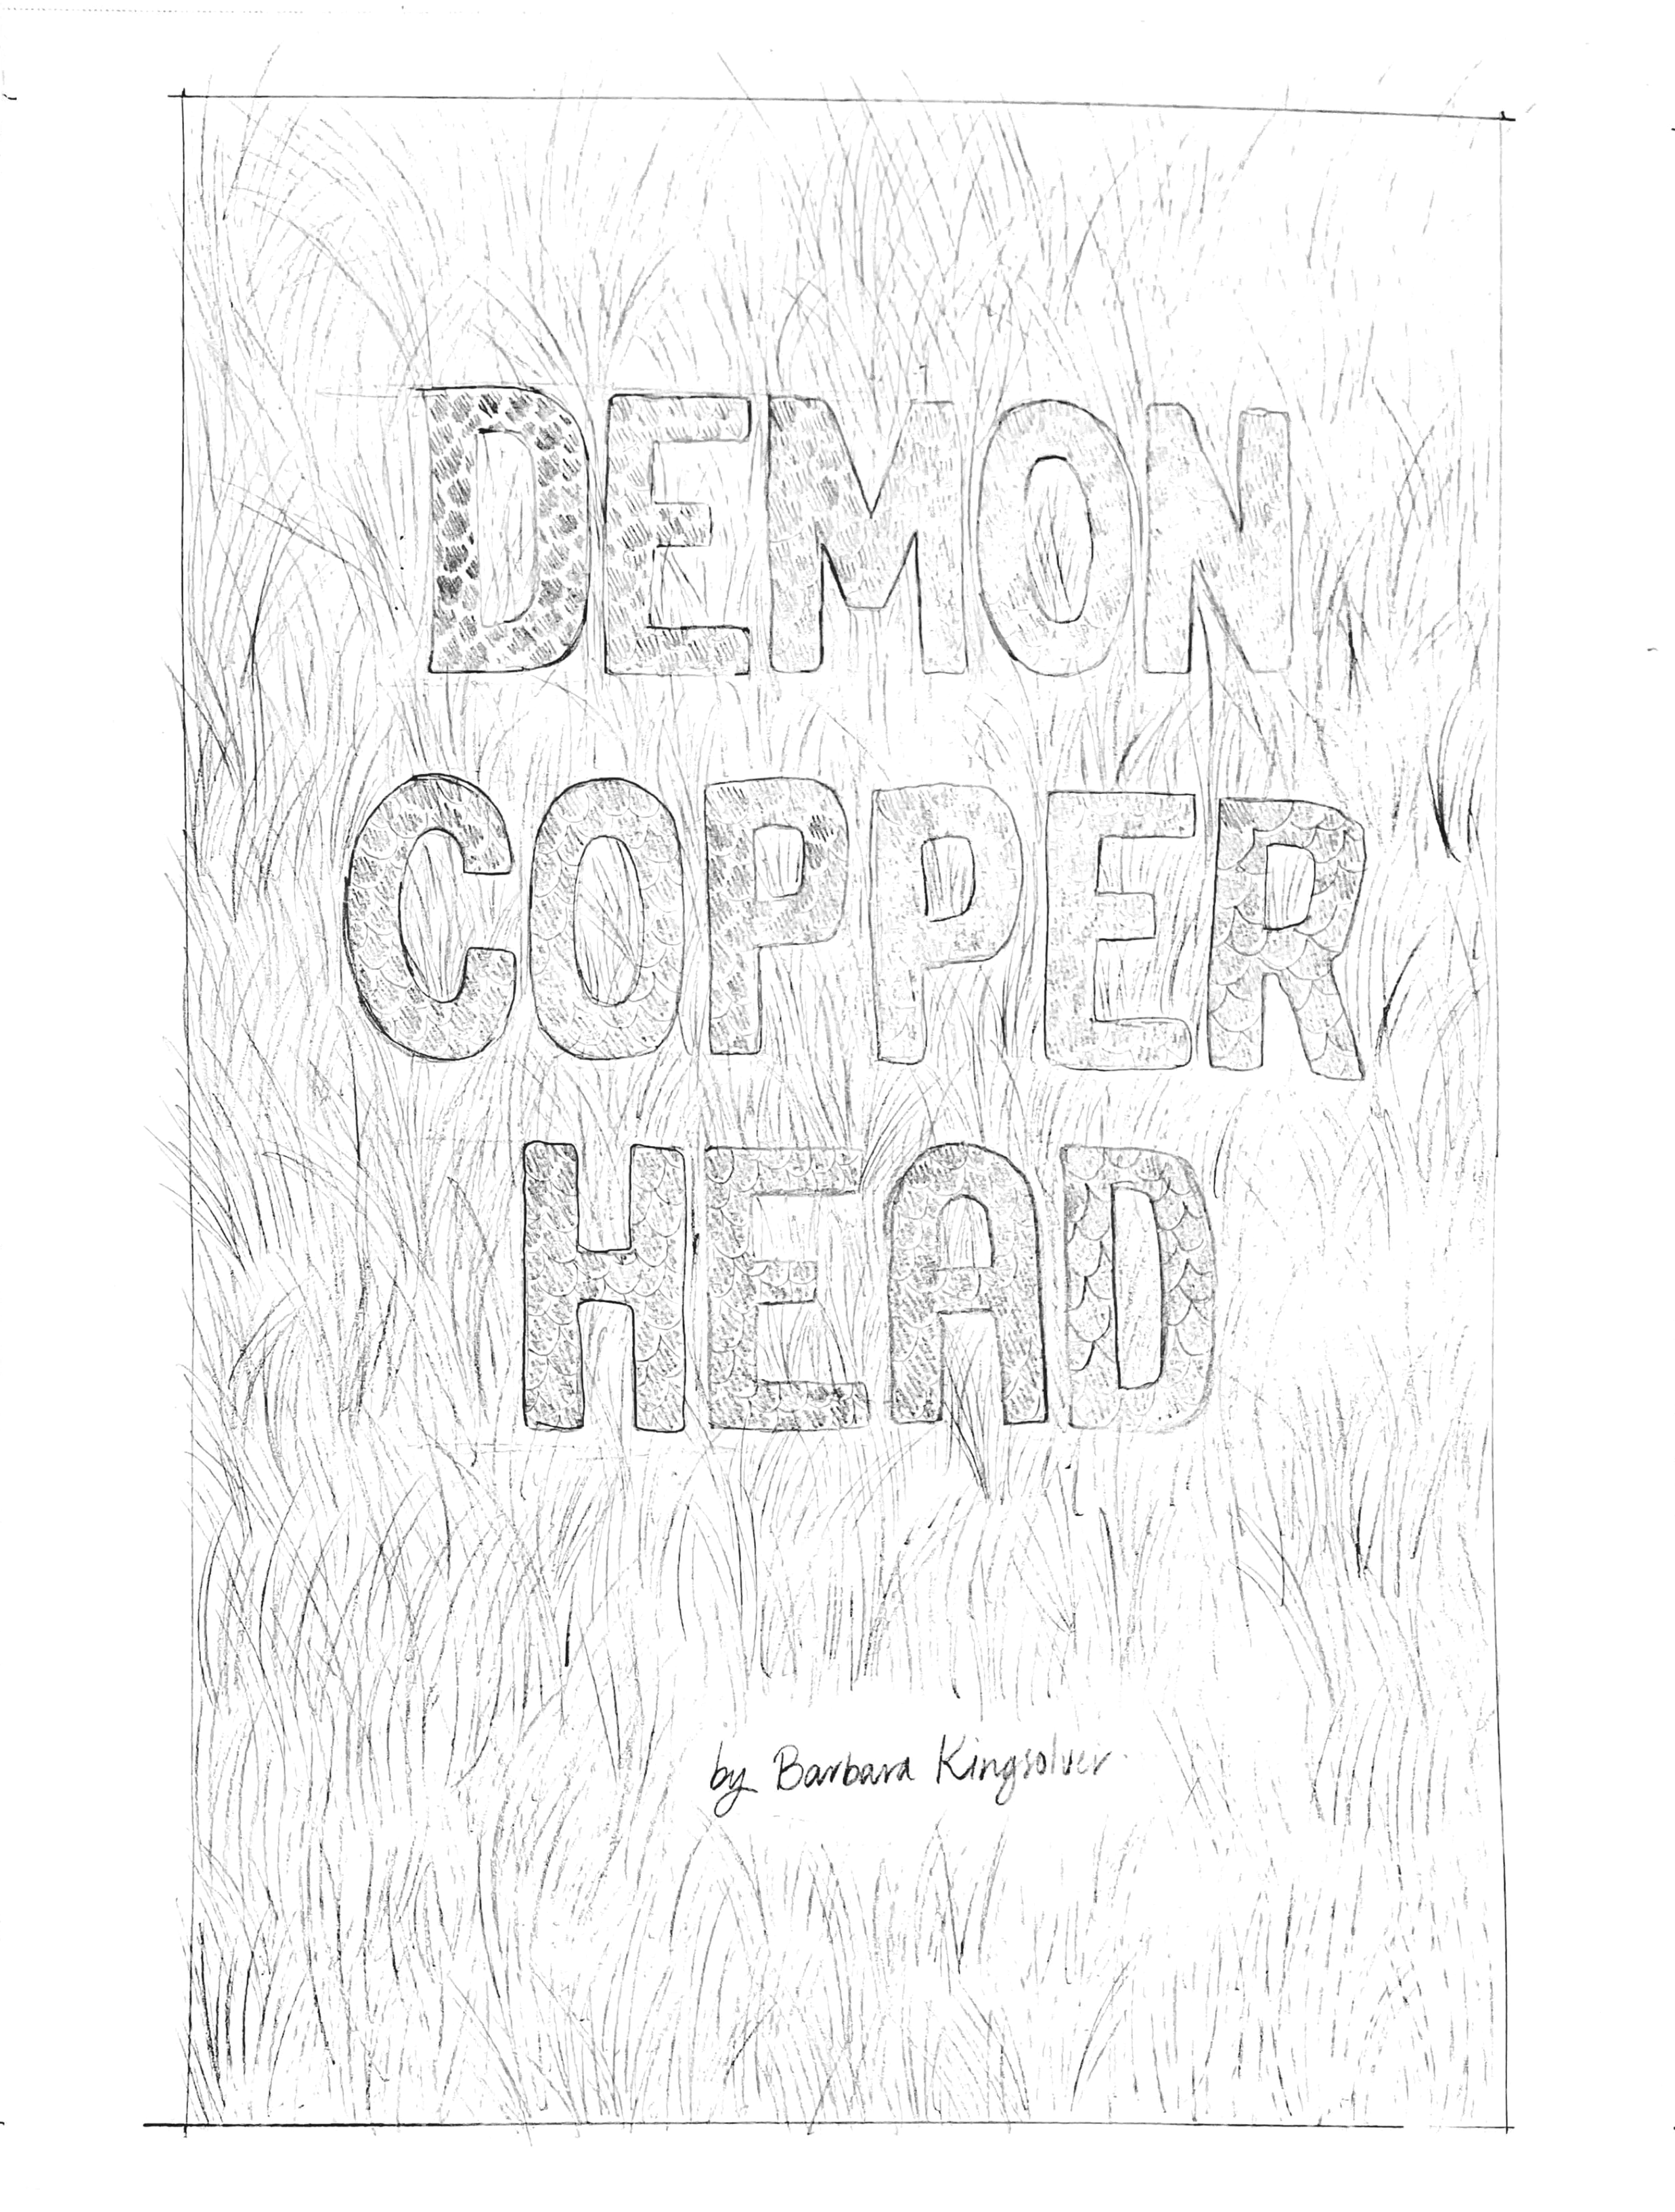 DEMON
COPPER
HEAD
by Barbara Kingsolver